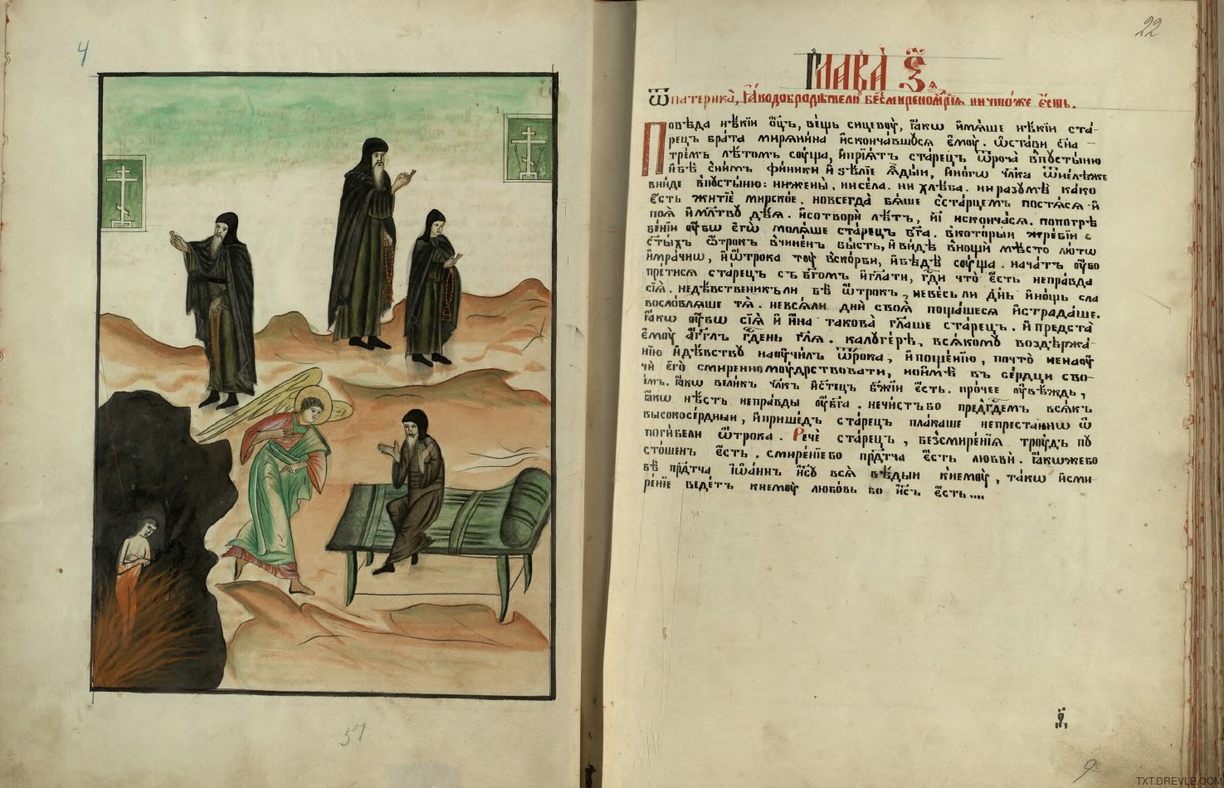 4
57
22
Глава з҃я
Ѿ патерика, ꙗко добродѣтели беⷥ смиреномⷣрїя ничтоже є҆сть.
Повѣда нѣкїи о҆ц҃ъ, вещь сицевꙋ, ꙗкѡ и҆мѧше нѣкїи ста-
рецъ брата мирѧнина и҆скончавшѹсѧ є҆мꙋ. ѡ҆стави сн҃а
трємъ лѣтомъ сꙋща, и҆прїѧтъ старецъ ѿроча впꙋстыню
и҆бѣ снимъ финики и҆ ѕѣлїе ꙗ҆дыи, и҆ногѡ чл҃ка
вниде впꙋстыню: нижены, нисела. ни хлѣба. ни разꙋмѣ како
є҆сть житїе мирское. новсегда бѧше сстарцемъ постѧсѧ и҆
поѧ и҆мл҃твꙋ дѣѧ. и҆сотвори лѣтъ, и҆скончасѧ. попогрѣ
бенїи ѹ҆бѡ є҆гѡ молѧше старецъ бг҃а. вкоторыи жребїи с
ст҃ыхъ ѿрокъ вчиненъ бысть, и҆видѣ внощи мѣсто лютѡ
и҆мрачнѡ, и҆ѿрока тꙋ вскорби, и҆бѣдѣ сꙋща. начатъ ѹ҆бо
прѣтисѧ старецъ съ бг҃омъ и҆гл҃ати, гдⷭ҇и что є҆сть неправда
сїѧ. недѣвственикъли бѣ ѿтрокъ, невесь ли дн҃ь и҆нощь сла
вословлѧше тѧ. невсѧли дни своѧ постѧшесѧ и҆страдаше.
ꙗкѡ ѹ҆бѡ сїѧ и҆ и҆на такова гл҃аше старецъ. и҆ предста
є҆мꙋ а҆гг҃лъ гдⷭ҇ень гл҃ѧ. калꙋгерѣ, всѧкомꙋ воздѣржа-
нїю и҆дѣвствꙋ наꙋчилъ ѿрока, и҆пощенїю, почто ненаꙋ
чи є҆го смиренномꙋдрствовати, нои҆мѣ въ сердци сво-
і҆мъ. ꙗкѡ великъ чл҃къ и҆ст҃ецъ бж҃їи є҆сть. прочее ѹ҆вѣждь,
ꙗкѡ нѣсть неправды ѹ҆бг҃а. нечистъбо предгдⷭ҇емъ всѧкъ
высокосердыи, и҆пришедъ старецъ плакаше непрестаннѡ ѡ
погибели ѿтрока. Рече старецъ, безсмиренїѧ трꙋдъ пꙋ
стошенъ є҆сть. смиренїебо прдⷣтча є҆сть любви. ꙗкѡжебо
бѣ прдⷣтча і҆ѡаннъ і҆сꙋ всѧ ведыи кнемꙋ, такѡ и҆сми
ренїе ведетъ кнемꙋ любовь бо і҆с҃ъ є҆сть....
9
TXT.DREVLE.COM